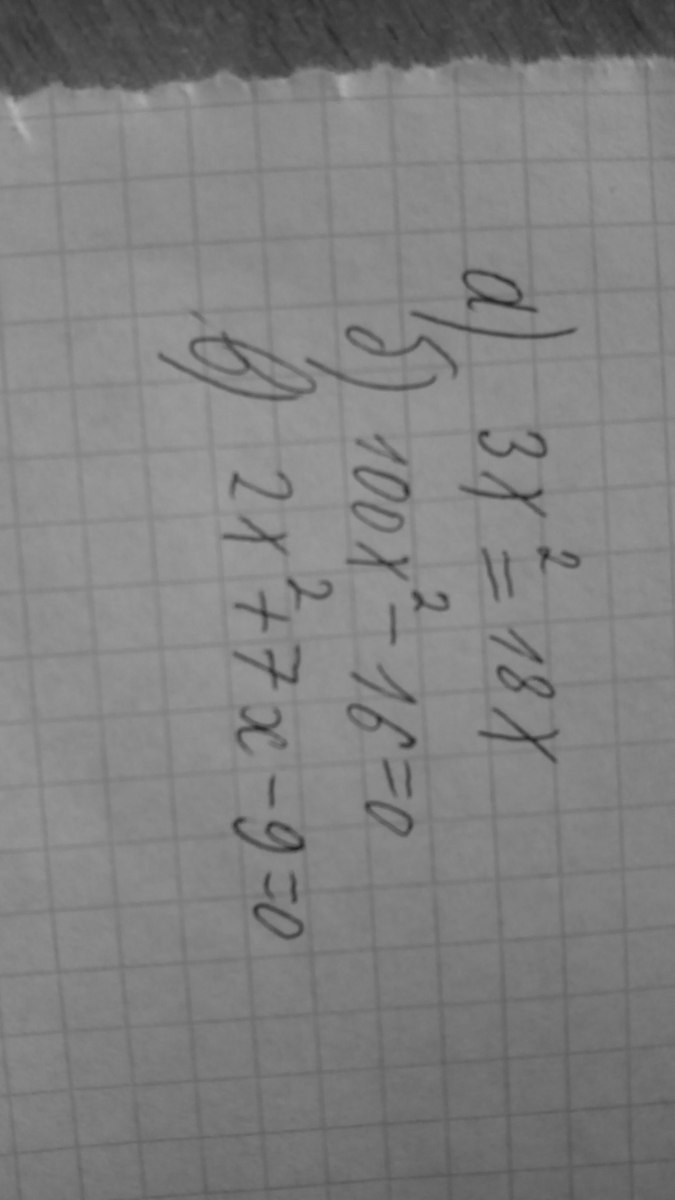 а) 3x² = 18x
б) 100x² - 16 = 0
в) 2x² + 7x - 9 = 0